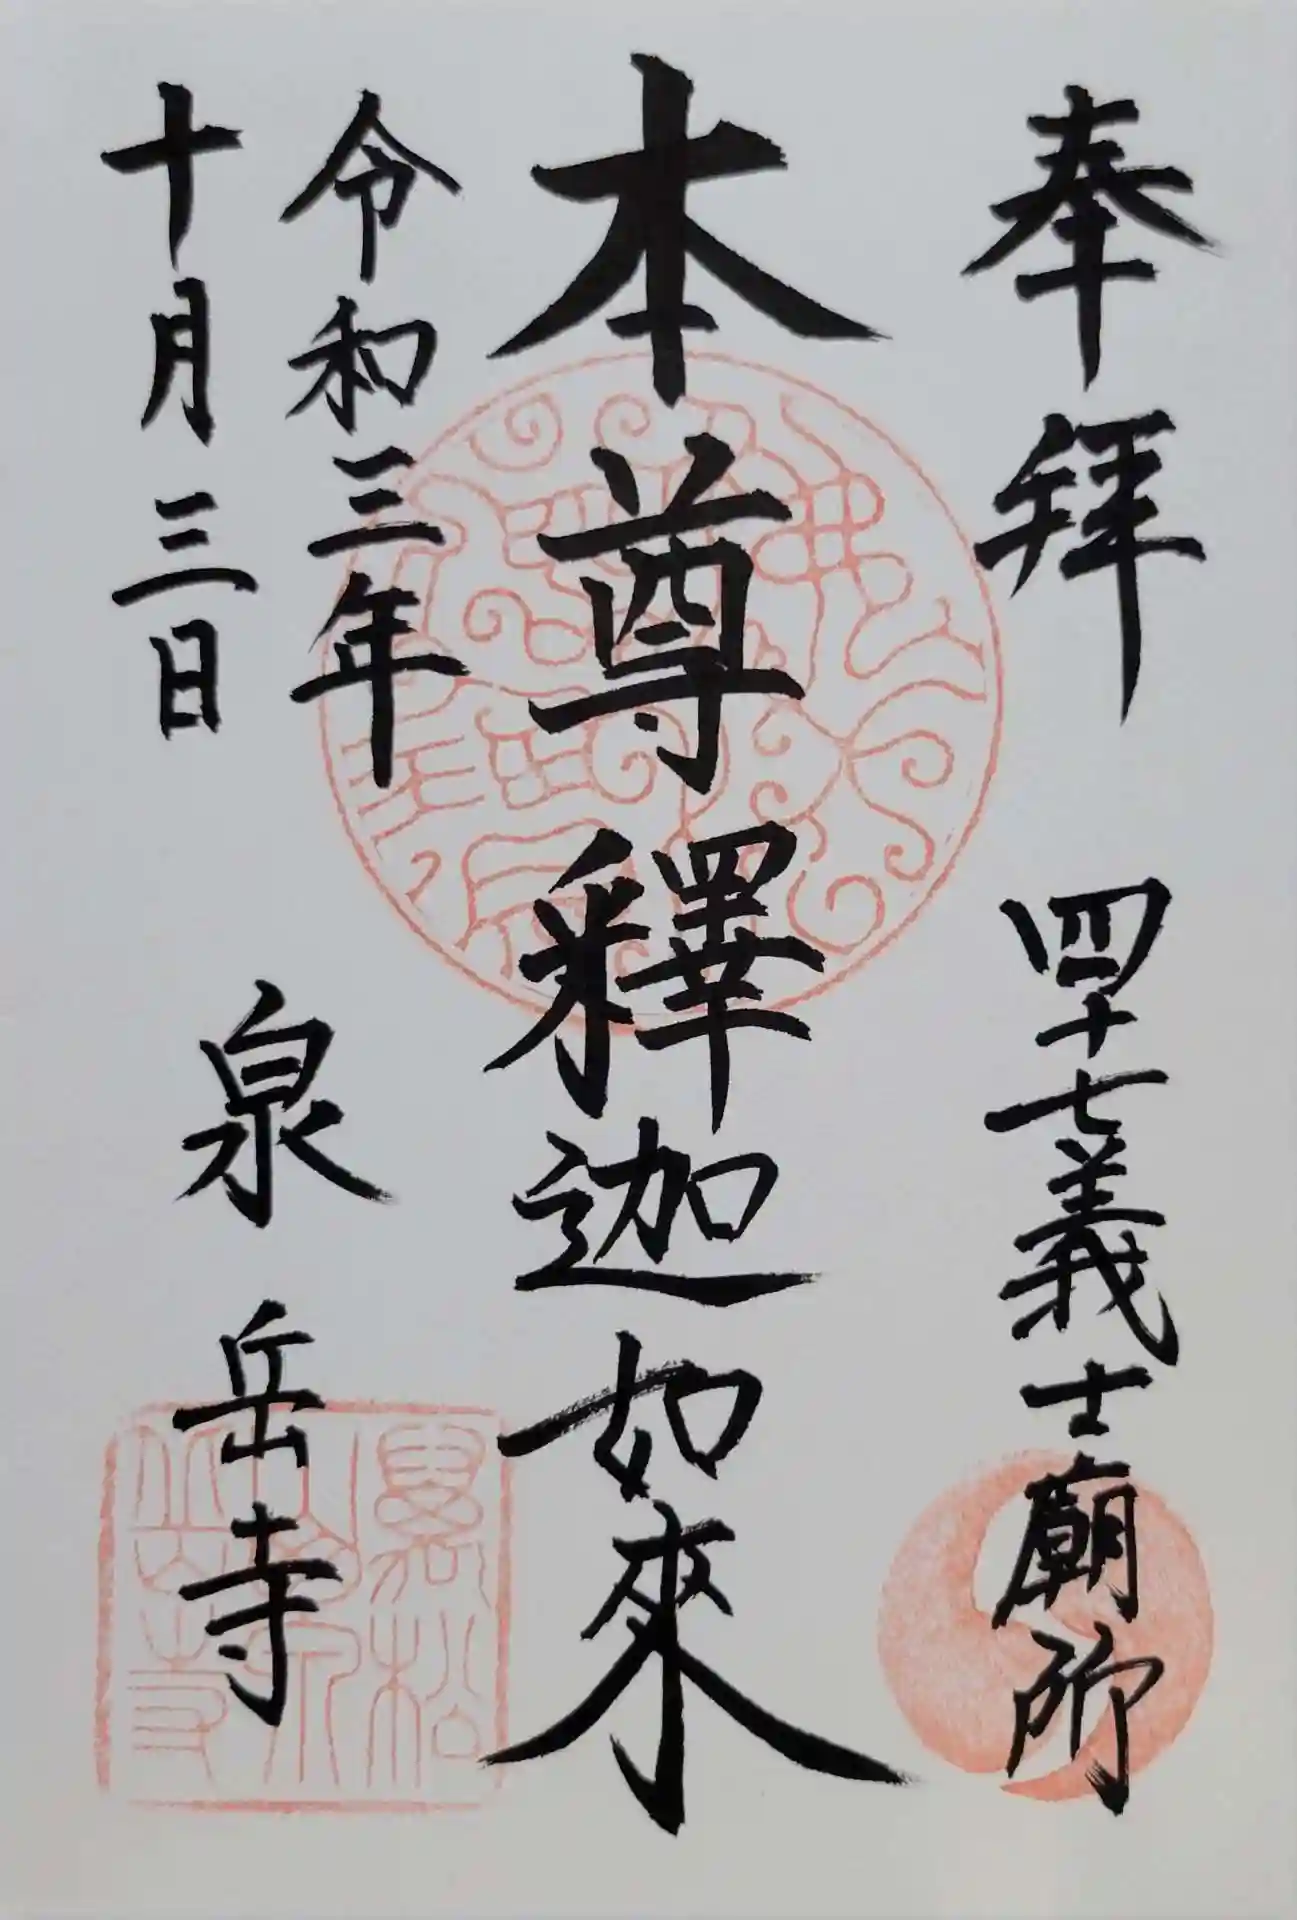 奉拝 四十七義士廟所
本尊釋迦如來
令和三年
十月三日
泉岳寺
萬松山泉岳寺